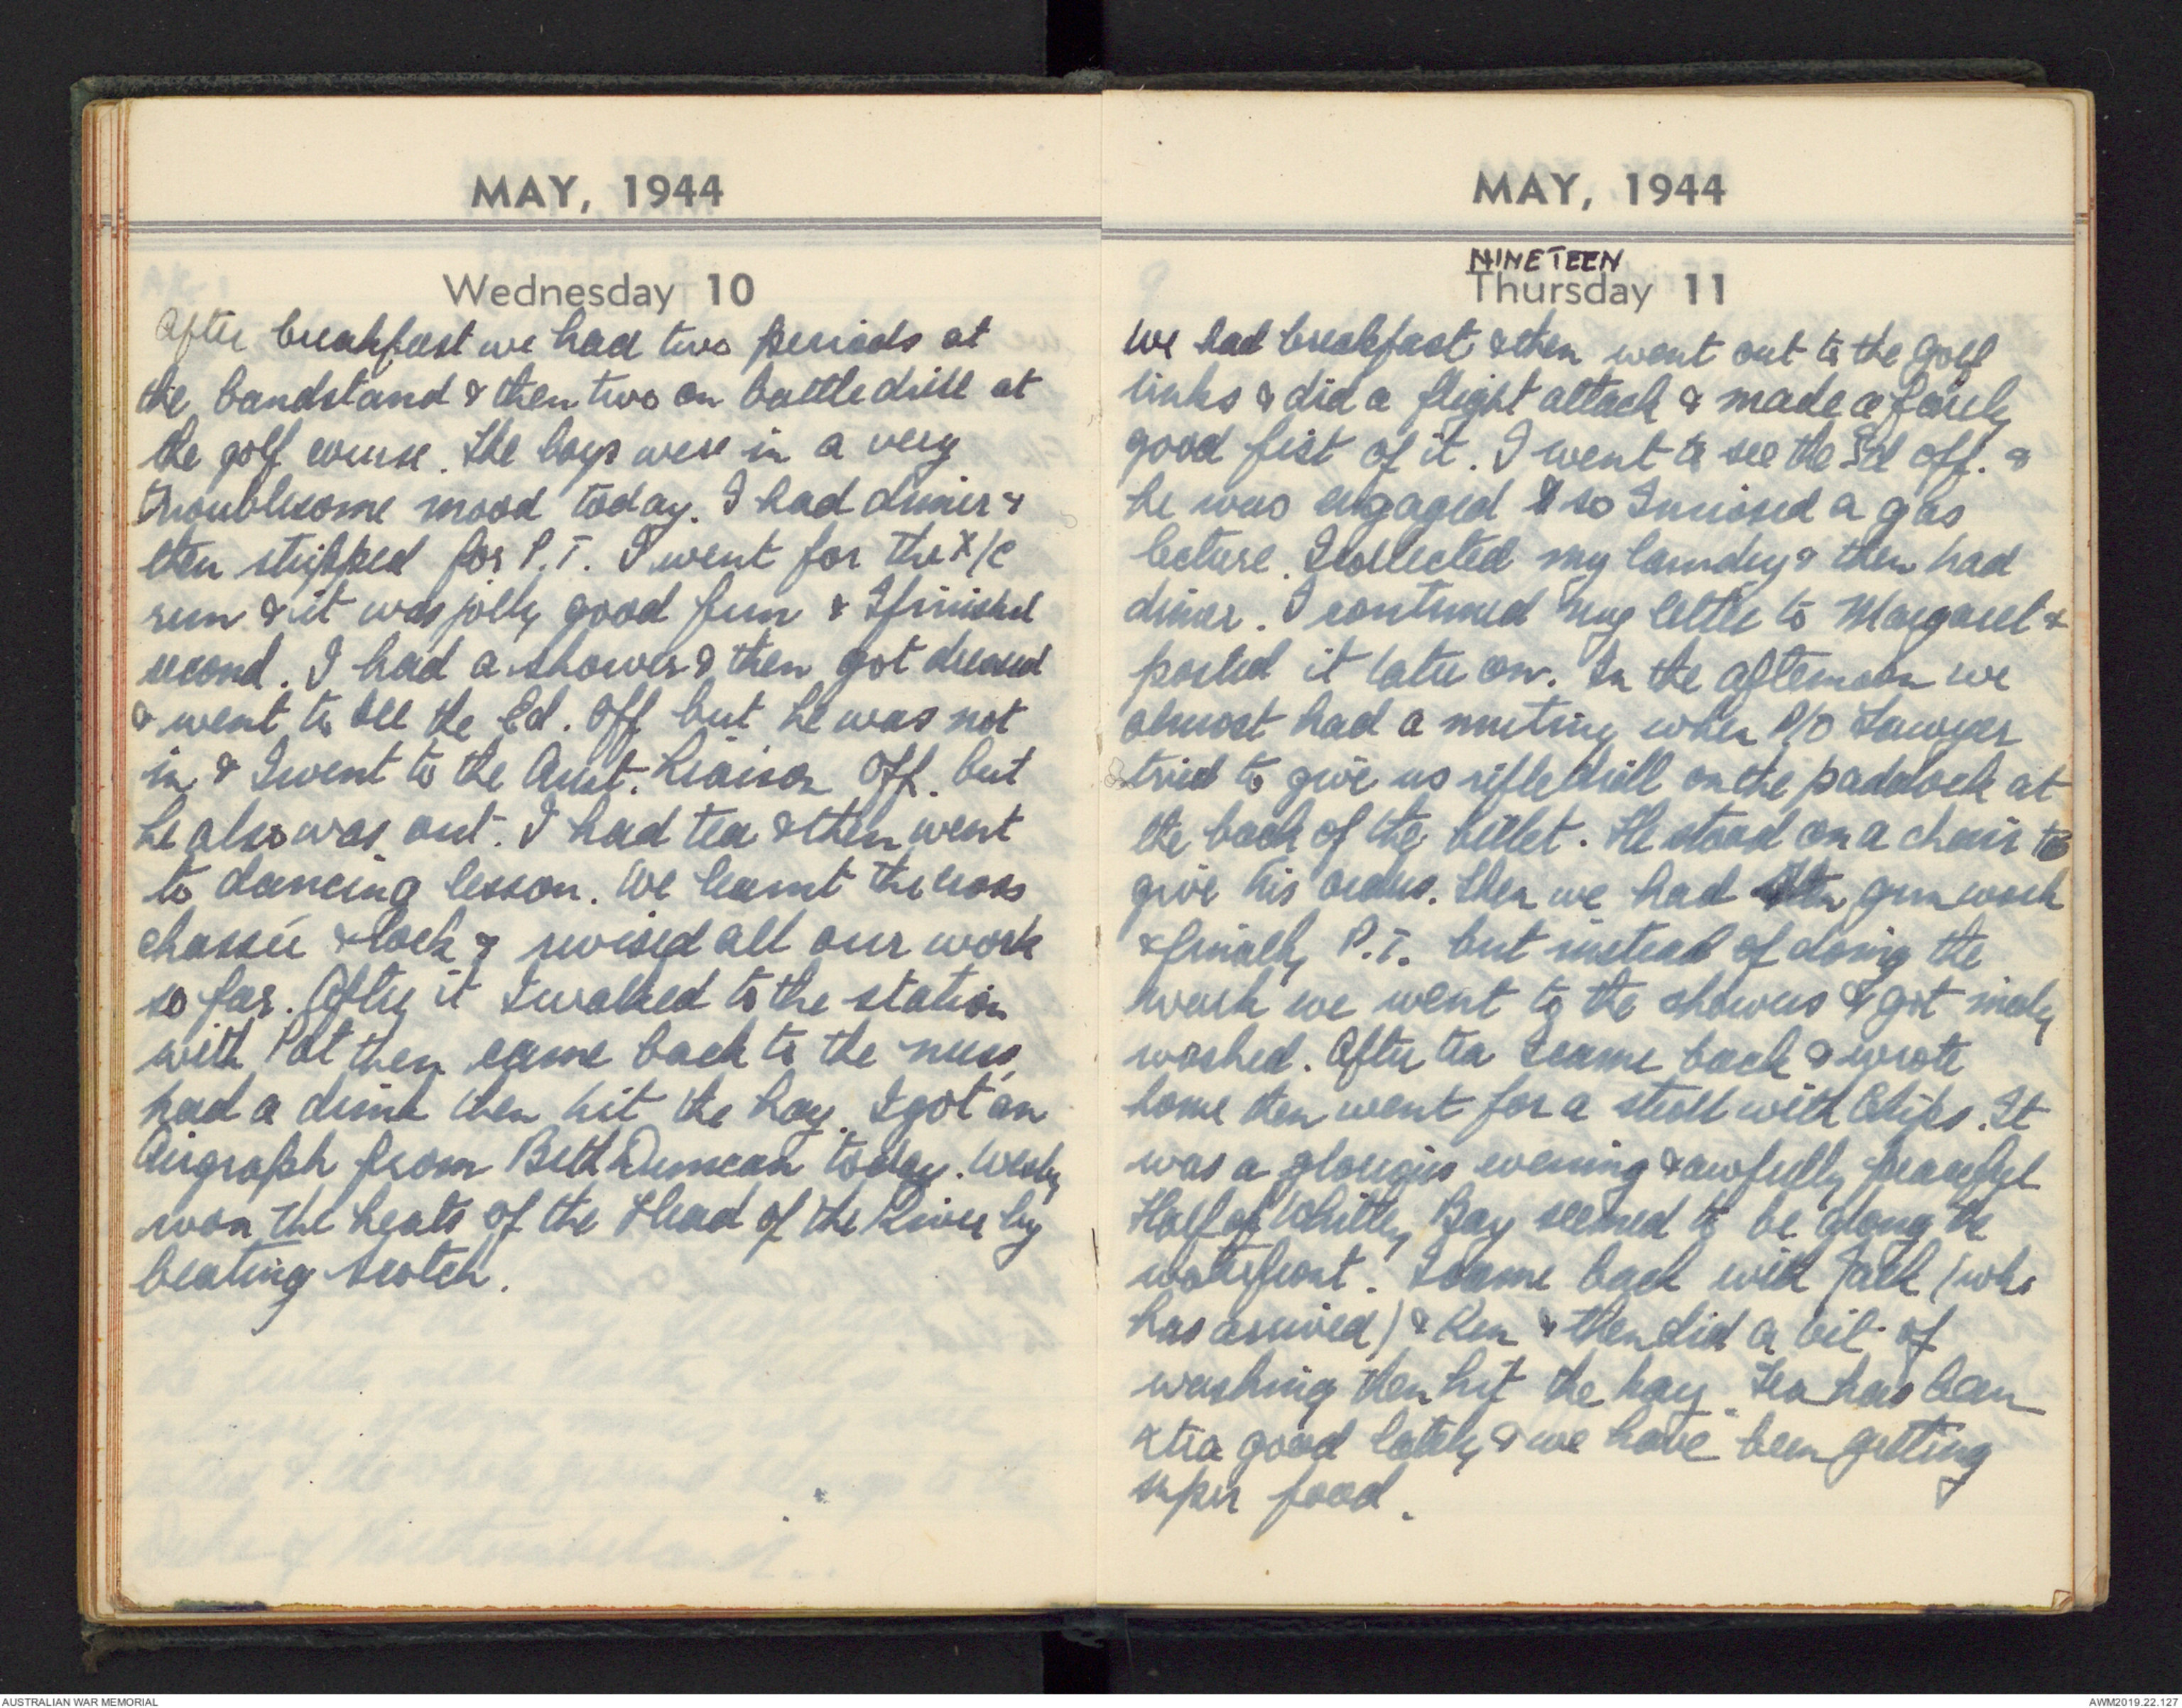 MAY, 1944
Wednesday 10
After breakfast we had two periods at
the bandstand & then two on battle drill at
the golf course. The boys were in a very
troublesome mood today. I had dinner &
then stripped for P.T. I went for the X/C
run & it was jolly good fun & I finished
second. I had a shower & then got dressed
& went to see the Ed. Off but he was not
in & I went to the Aust. Liaison Off. but
he also was out. I had tea & then went
to dancing lesson. We learnt the cross
chassée & lock & revised all our work
so far. After it I walked to the station
with Pat then came back to the mess,
had a drink then hit the hay. I got an
Airgraph from Beth Duncan today. Wesley
won the heats of the Head of the River by
beating Scotch.
MAY, 1944
NINETEEN
Thursday 11
We had breakfast & then went out to the golf
links & did a flight attack & made a fairly
good fist of it. I went to see the Ed off. &
he was engaged & so I missed a gas
lecture. I collected my laundry & then had
dinner. I continued my letter to Margaret &
posted it later on. In the afternoon we
almost had a mutiny when P/O Sawyer
tried to give us rifle drill on the paddock at
the back of the billet. He stood on a chair to
give his orders. Then we had Sten gun work
& finally P.T. but instead of doing the
work we went to the showers & got nicely
washed. After tea I came back & wrote
home then went for a stroll with Chips. It
was a glorious evening & awfully peaceful
Half of Whitley Bay seemed to be along the
waterfront. I came back with Jack (who
has arrived) & Ken & then did a bit of
washing then hit the hay. Tea has been
xtra good lately & we have been getting
super food.
AUSTRALIAN WAR MEMORIAL
AWM2019.22.127